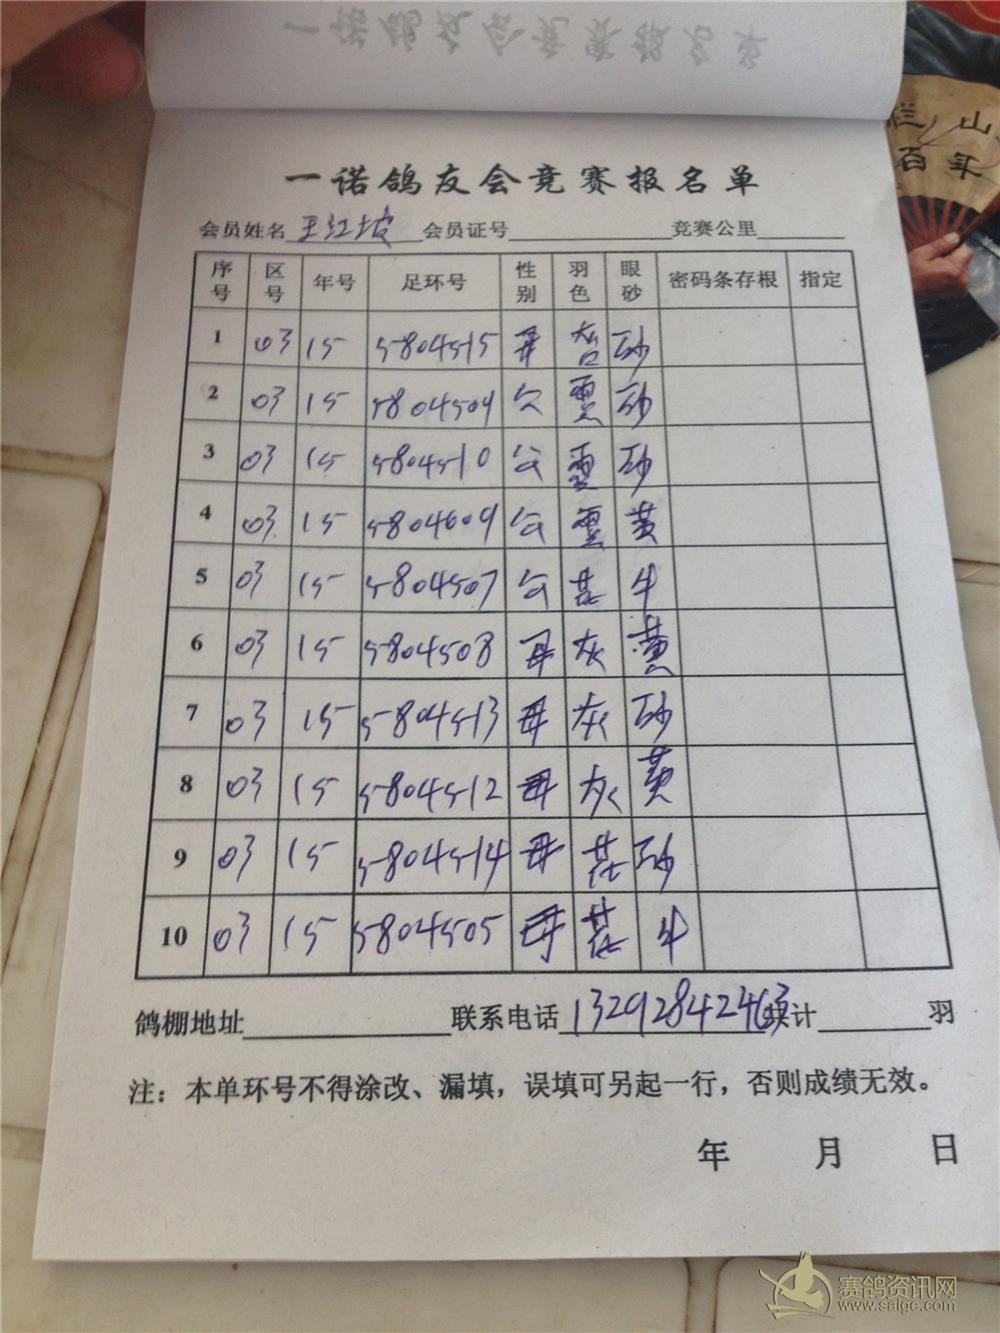 一诺鸽友会竞赛报名单
会员姓名 王江坡 会员证号 竞赛公里
序号 区号 年号 足环号 性别 羽色 眼砂 密码条存根 指定
1 03 15 5804515 母 砂
2 03 15 5804504 公 砂
3 03 15 5804510 公 砂
4 03 15 5804609 公 黄
5 03 15 5804507 公 花 牛
6 03 15 5804508 母 灰 黄
7 03 15 5804513 母 灰 砂
8 03 15 5804512 母 灰 黄
9 03 15 5804514 母 花 砂
10 03 15 5804505 母 花 牛
鸽棚地址 联系电话 13292842463 共计 羽
注：本单环号不得涂改、漏填，误填可另起一行，否则成绩无效。
年 月 日
栏山
百年
赛鸽资讯网
www.saigc.com